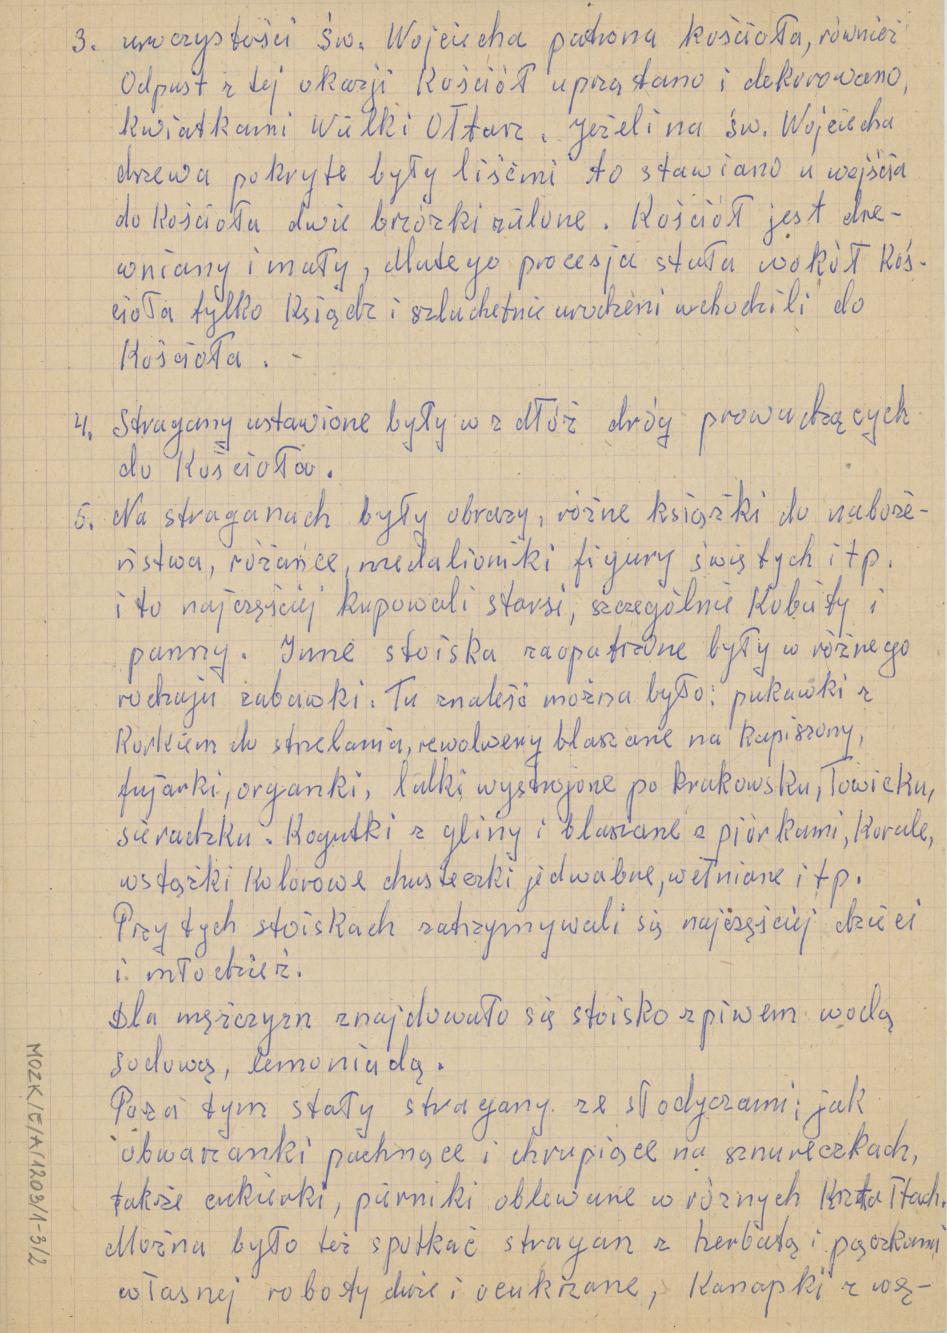 3. uroczystości św. Wojciecha patrona kościoła, również
Odpust z tej okazji Kościół uprzątano i dekorowano,
kwiatkami Wielki Ołtarz. Jeżeli na św. Wojciecha
drzewa pokryte były liśćmi to stawiano u wejścia
do Kościoła dwie brzózki zielone. Kościół jest dre-
wniany i mały, dlatego procesja stała wokół Koś-
cioła tylko Ksiądz i szlachetnie urodzeni wchodzili do
Kościoła. -
4. Stragany ustawione były w z dłóż dróg prowadzących
do Kościoła.
5. Na straganach były obrazy, różne książki do naboże-
ństwa, różańce, medalioniki figury świętych itp.
i to najczęściej kupowali starsi, szczególnie Kobiety i
panny. Inne stoiska zaopatrzone były w różnego
rodzaju zabawki. Tu znaleść można było: pukawki z
Korkiem do strzelania, rewolwery blaszane na kapiszony,
fujarki, organki, lalki wystrojone po krakowsku, łowicku,
sieradzku. Kogutki z gliny i blaszane z piórkami, Korale,
wstążki Kolorowe chusteczki jedwabne, wełniane itp.
Przy tych stoiskach zatrzymywali się najczęściej dzieci
i młodzież.
Dla mężczyzn znajdowało się stoisko z piwem wodą
sodową, lemoniadą.
Poza tym stały stragany ze słodyczami; jak
obwarzanki pachnące i chrupiące na sznureczkach,
także cukierki, pierniki oblewane w różnych Kształtach.
Można było też spotkać stragan z herbatą i pączkami
własnej roboty duże i ocukrzane, Kanapki z wę-
MOZK/E/A/1203/1-3/2